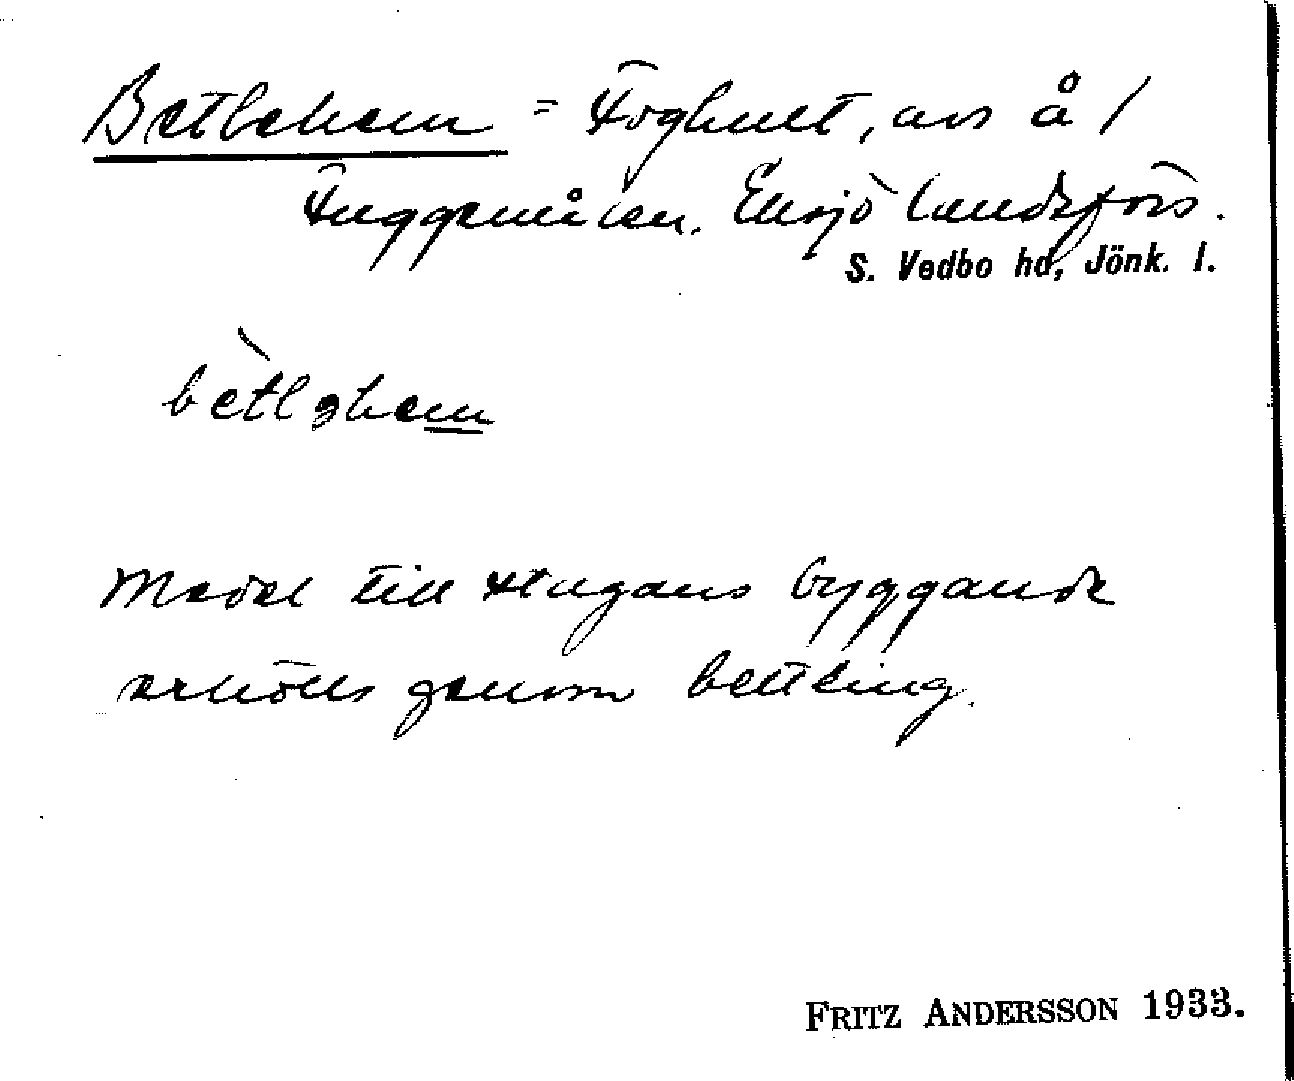 Betlehem = Foghult, avs å /
Fuggemålen. Eksjö landsförs.
S. Vedbo hd, Jönk. l.
bètləhem
Medel till stugans byggande
erhölls genom bettling.
FRITZ ANDERSSON 1933.